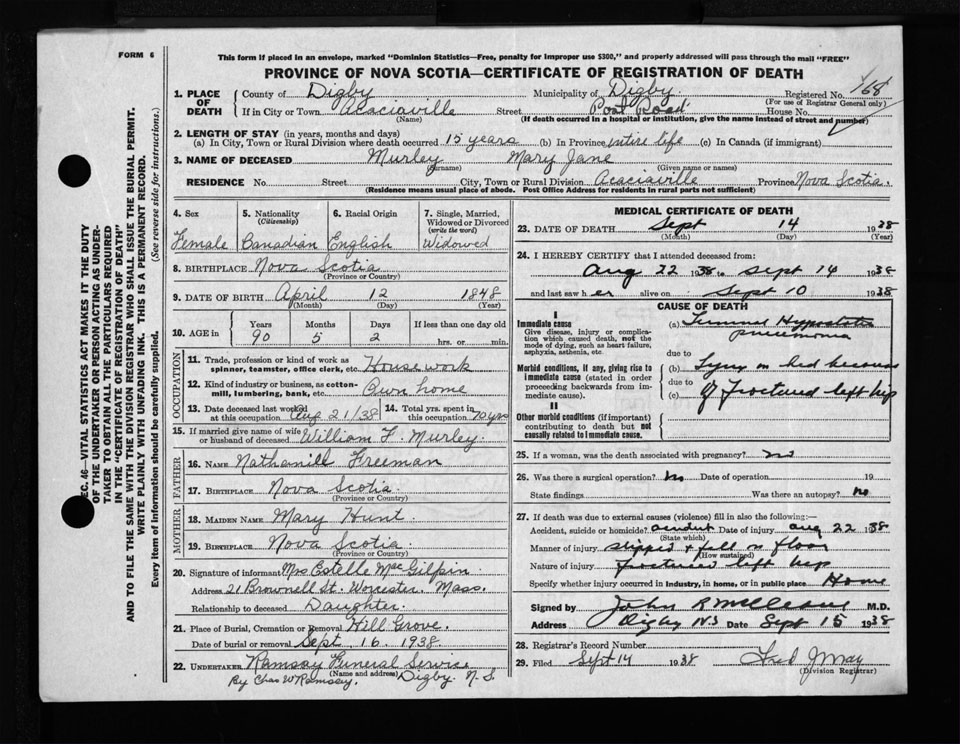 FORM 6
This form if placed in an envelope, marked "Dominion Statistics—Free, penalty for improper use $300," and properly addressed will pass through the mail "FREE"
PROVINCE OF NOVA SCOTIA—CERTIFICATE OF REGISTRATION OF DEATH
1. PLACE OF DEATH
County of Digby Municipality of Digby Registered No. 168
(For use of Registrar General only)
If in City or Town Acaciaville Street Post Road House No.
(Name) (If death occurred in a hospital or institution, give the name instead of street and number)
2. LENGTH OF STAY (in years, months and days)
(a) In City, Town or Rural Division where death occurred 15 years (b) In Province entire life (c) In Canada (if immigrant)
3. NAME OF DECEASED Murley Mary Jane
(Surname) (Given name or names)
RESIDENCE No Street City, Town or Rural Division Acaciaville Province Nova Scotia.
(Residence means usual place of abode. Post Office Address for residents in rural parts not sufficient)
4. Sex 5. Nationality (Citizenship) 6. Racial Origin 7. Single, Married, Widowed or Divorced (write the word)
Female Canadian English Widowed
8. BIRTHPLACE Nova Scotia
(Province or Country)
9. DATE OF BIRTH April 12 1848
(Month) (Day) (Year)
10. AGE in Years Months Days If less than one day old
90 5 2 hrs. or min.
OCCUPATION
11. Trade, profession or kind of work as spinner, teamster, office clerk, etc. Housework
12. Kind of industry or business, as cotton-mill, lumbering, bank, etc. Own home
13. Date deceased last worked at this occupation Aug 21/38 14. Total yrs. spent in this occupation 70 yrs
15. If married give name of wife or husband of deceased William F. Murley.
FATHER
16. NAME Nathaniel Freeman
17. BIRTHPLACE Nova Scotia
(Province or Country)
MOTHER
18. MAIDEN NAME Mary Hunt.
19. BIRTHPLACE Nova Scotia
(Province or Country)
20. Signature of informant Mrs Estelle MacGilpin
Address 21 Brownell St. Worcester. Mass.
Relationship to deceased Daughter.
21. Place of Burial, Cremation or Removal Hill Grove.
Date of burial or removal Sept. 16. 1938.
22. UNDERTAKER Ramsay Funeral Service
(Name and address) Digby. N.S.
By Chas W Ramsay.
MEDICAL CERTIFICATE OF DEATH
23. DATE OF DEATH Sept 14 1938
(Month) (Day) (Year)
24. I HEREBY CERTIFY that I attended deceased from:
Aug 22 1938 to Sept 14 1938
and last saw her alive on Sept 10 1938
CAUSE OF DEATH
I
Immediate cause
Give disease, injury or complication which caused death, not the mode of dying, such as heart failure, asphyxia, asthenia, etc.
(a) Terminal Hypostatic pneumonia
due to
Morbid conditions, if any, giving rise to immediate cause (stated in order proceeding backwards from immediate cause).
(b) Lying in bed because
due to
(c) of Fractured left hip
II
Other morbid conditions (if important) contributing to death but not causally related to immediate cause.
25. If a woman, was the death associated with pregnancy? no
26. Was there a surgical operation? No Date of operation 19
State findings Was there an autopsy? no
27. If death was due to external causes (violence) fill in also the following:—
Accident, suicide or homicide? accident Date of injury Aug 22 1938
(State which)
Manner of injury slipped & fell on floor
(How sustained)
Nature of injury Fractured left hip
Specify whether injury occurred in industry, in home, or in public place Home
Signed by John R McCleave M.D.
Address Digby NS Date Sept 15 1938
28. Registrar's Record Number
29. Filed Sept 14 1938 Fred J May
(Division Registrar)
SEC. 46—VITAL STATISTICS ACT MAKES IT THE DUTY
OF THE UNDERTAKER OR PERSON ACTING AS UNDER-
TAKER TO OBTAIN ALL THE PARTICULARS REQUIRED
IN THE "CERTIFICATE OF REGISTRATION OF DEATH"
AND TO FILE THE SAME WITH THE DIVISION REGISTRAR WHO SHALL ISSUE THE BURIAL PERMIT.
WRITE PLAINLY WITH UNFADING INK. THIS IS A PERMANENT RECORD.
Every item of information should be carefully supplied. (See reverse side for instructions.)